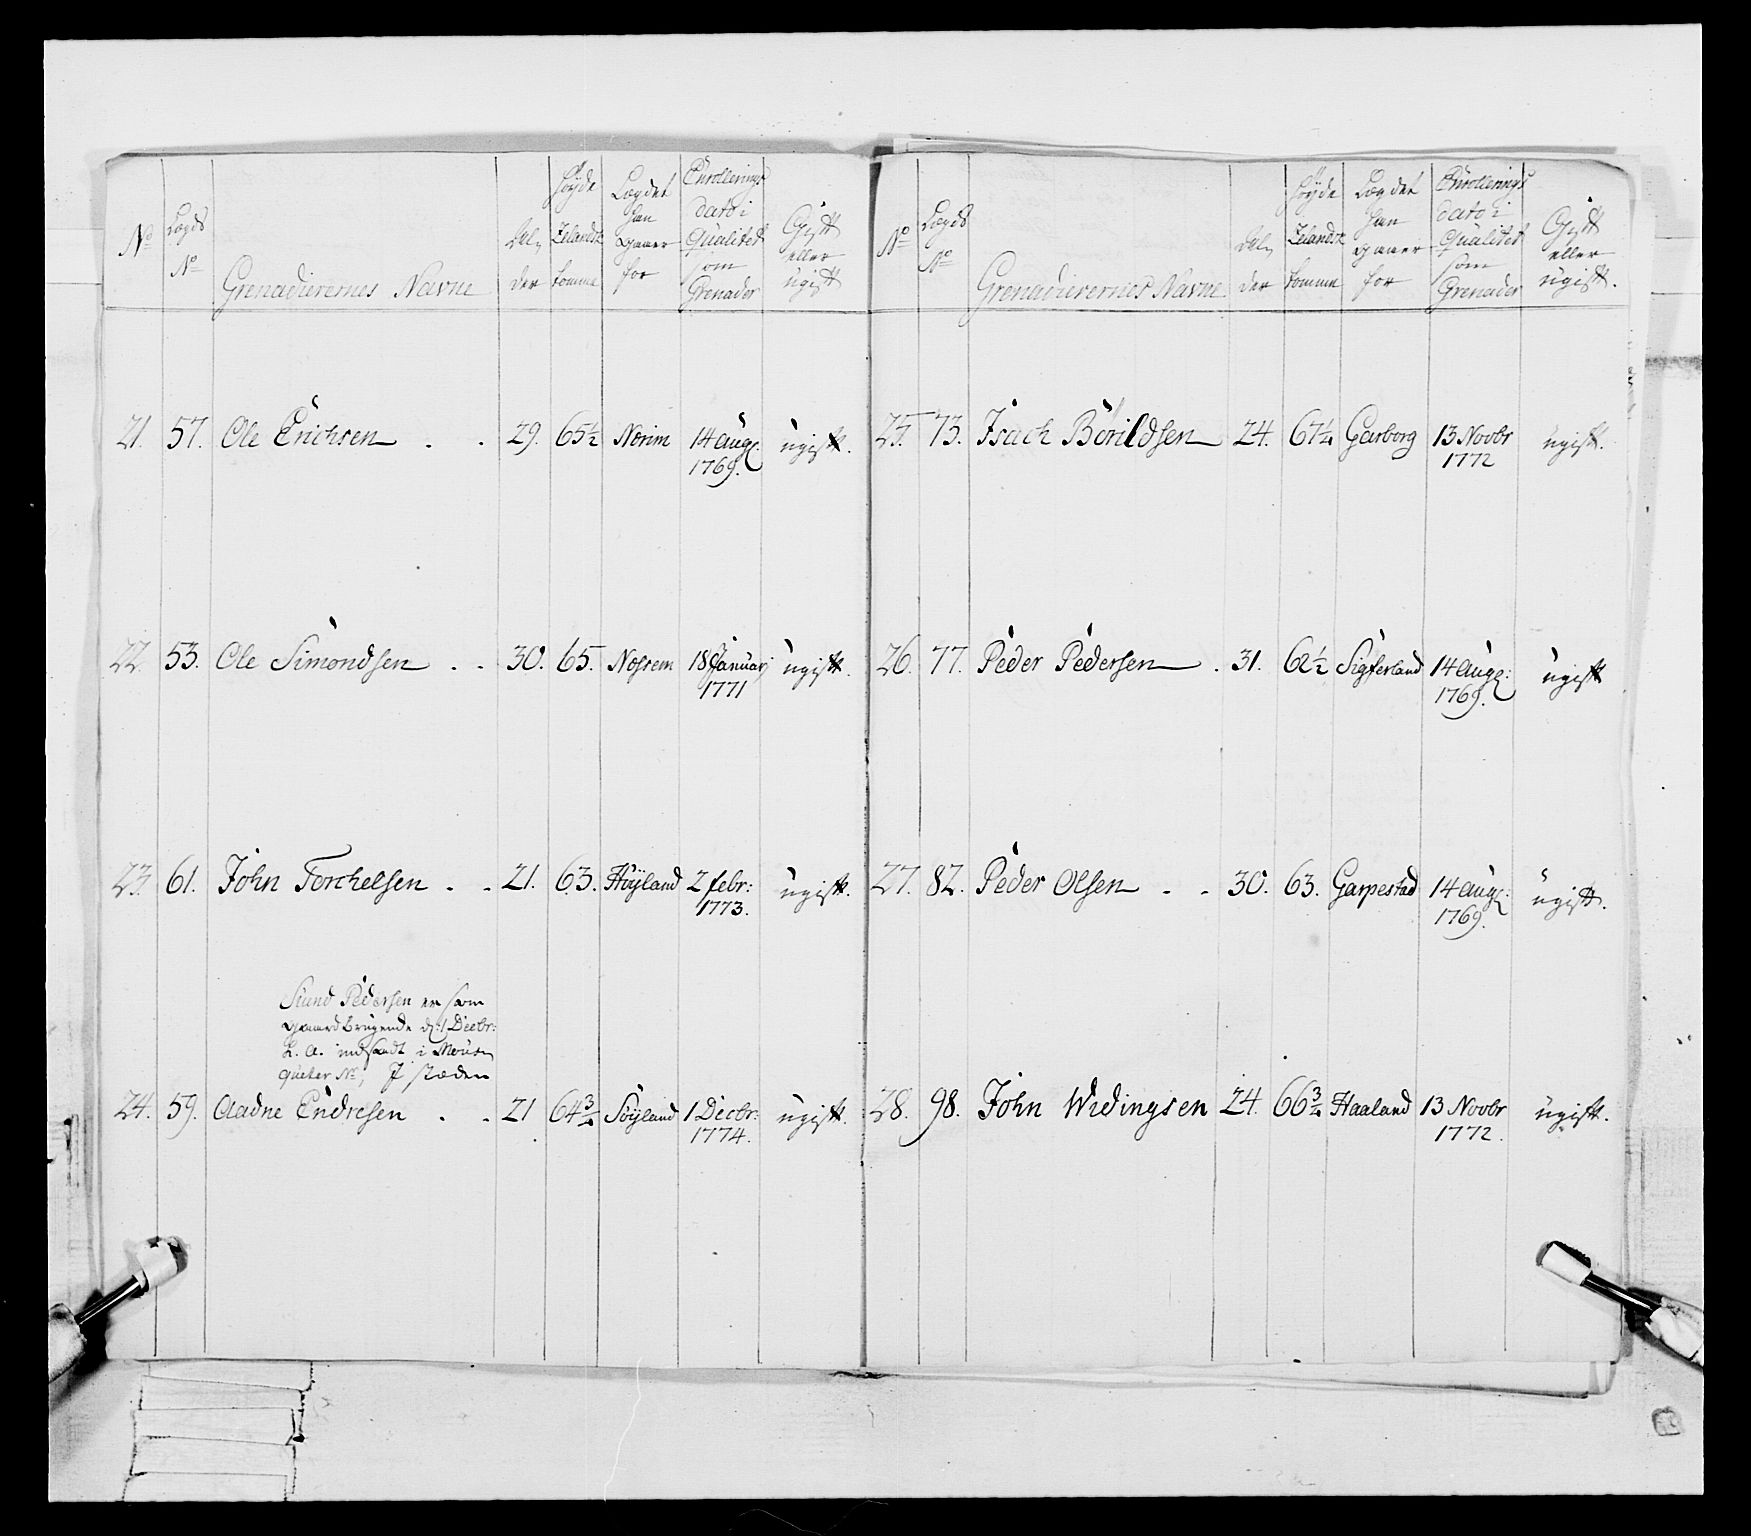 No
Lægds
No
Grenadierernes Navne
Høyde
Zelandsk
tomme
Lægdet
han
gaaer
for
Enrollerings
dato i
Qualitet
som
Grenader
Gift
eller
ugift
21. 57. Ole Erichsen . . 29. 65½ Norim 14 Aug:
1769. ugift.
22. 53. Ole Simondsen . . 30. 65. Nosrem 18 Januarj
1771 ugift.
23. 61. John Torchelsen . . 21. 63. Høyland 2 febr:
1773. ugift.
Siund Pedersen er som
gaardbrugende d: 1 Decbr:
indsadt i
No, I stæden
24. 59. Aadne Endresen . . 21 64¾ Søyland 1 Decbr:
1774. ugift.
No
Lægds
No
Grenadierernes Navne
Høyde
Zelandsk
tomme
Lægdet
han
gaaer
for
Enrollerings
dato i
Qualitet
som
Grenader
Gift
eller
ugift.
25. 73. Isach Börildsen 24. 67¼ Garborg 13 Novbr
1772 ugift.
26. 77. Peder Pedersen . 31. 62½ Sigferland 14 Aug:
1769. ugift
27. 82. Peder Olsen . . 30. 63. Garpestad 14 Aug:
1769. ugift.
28. 98. John Wedingsen 24. 66¾ Haaland 13 Novbr
1772. ugift.